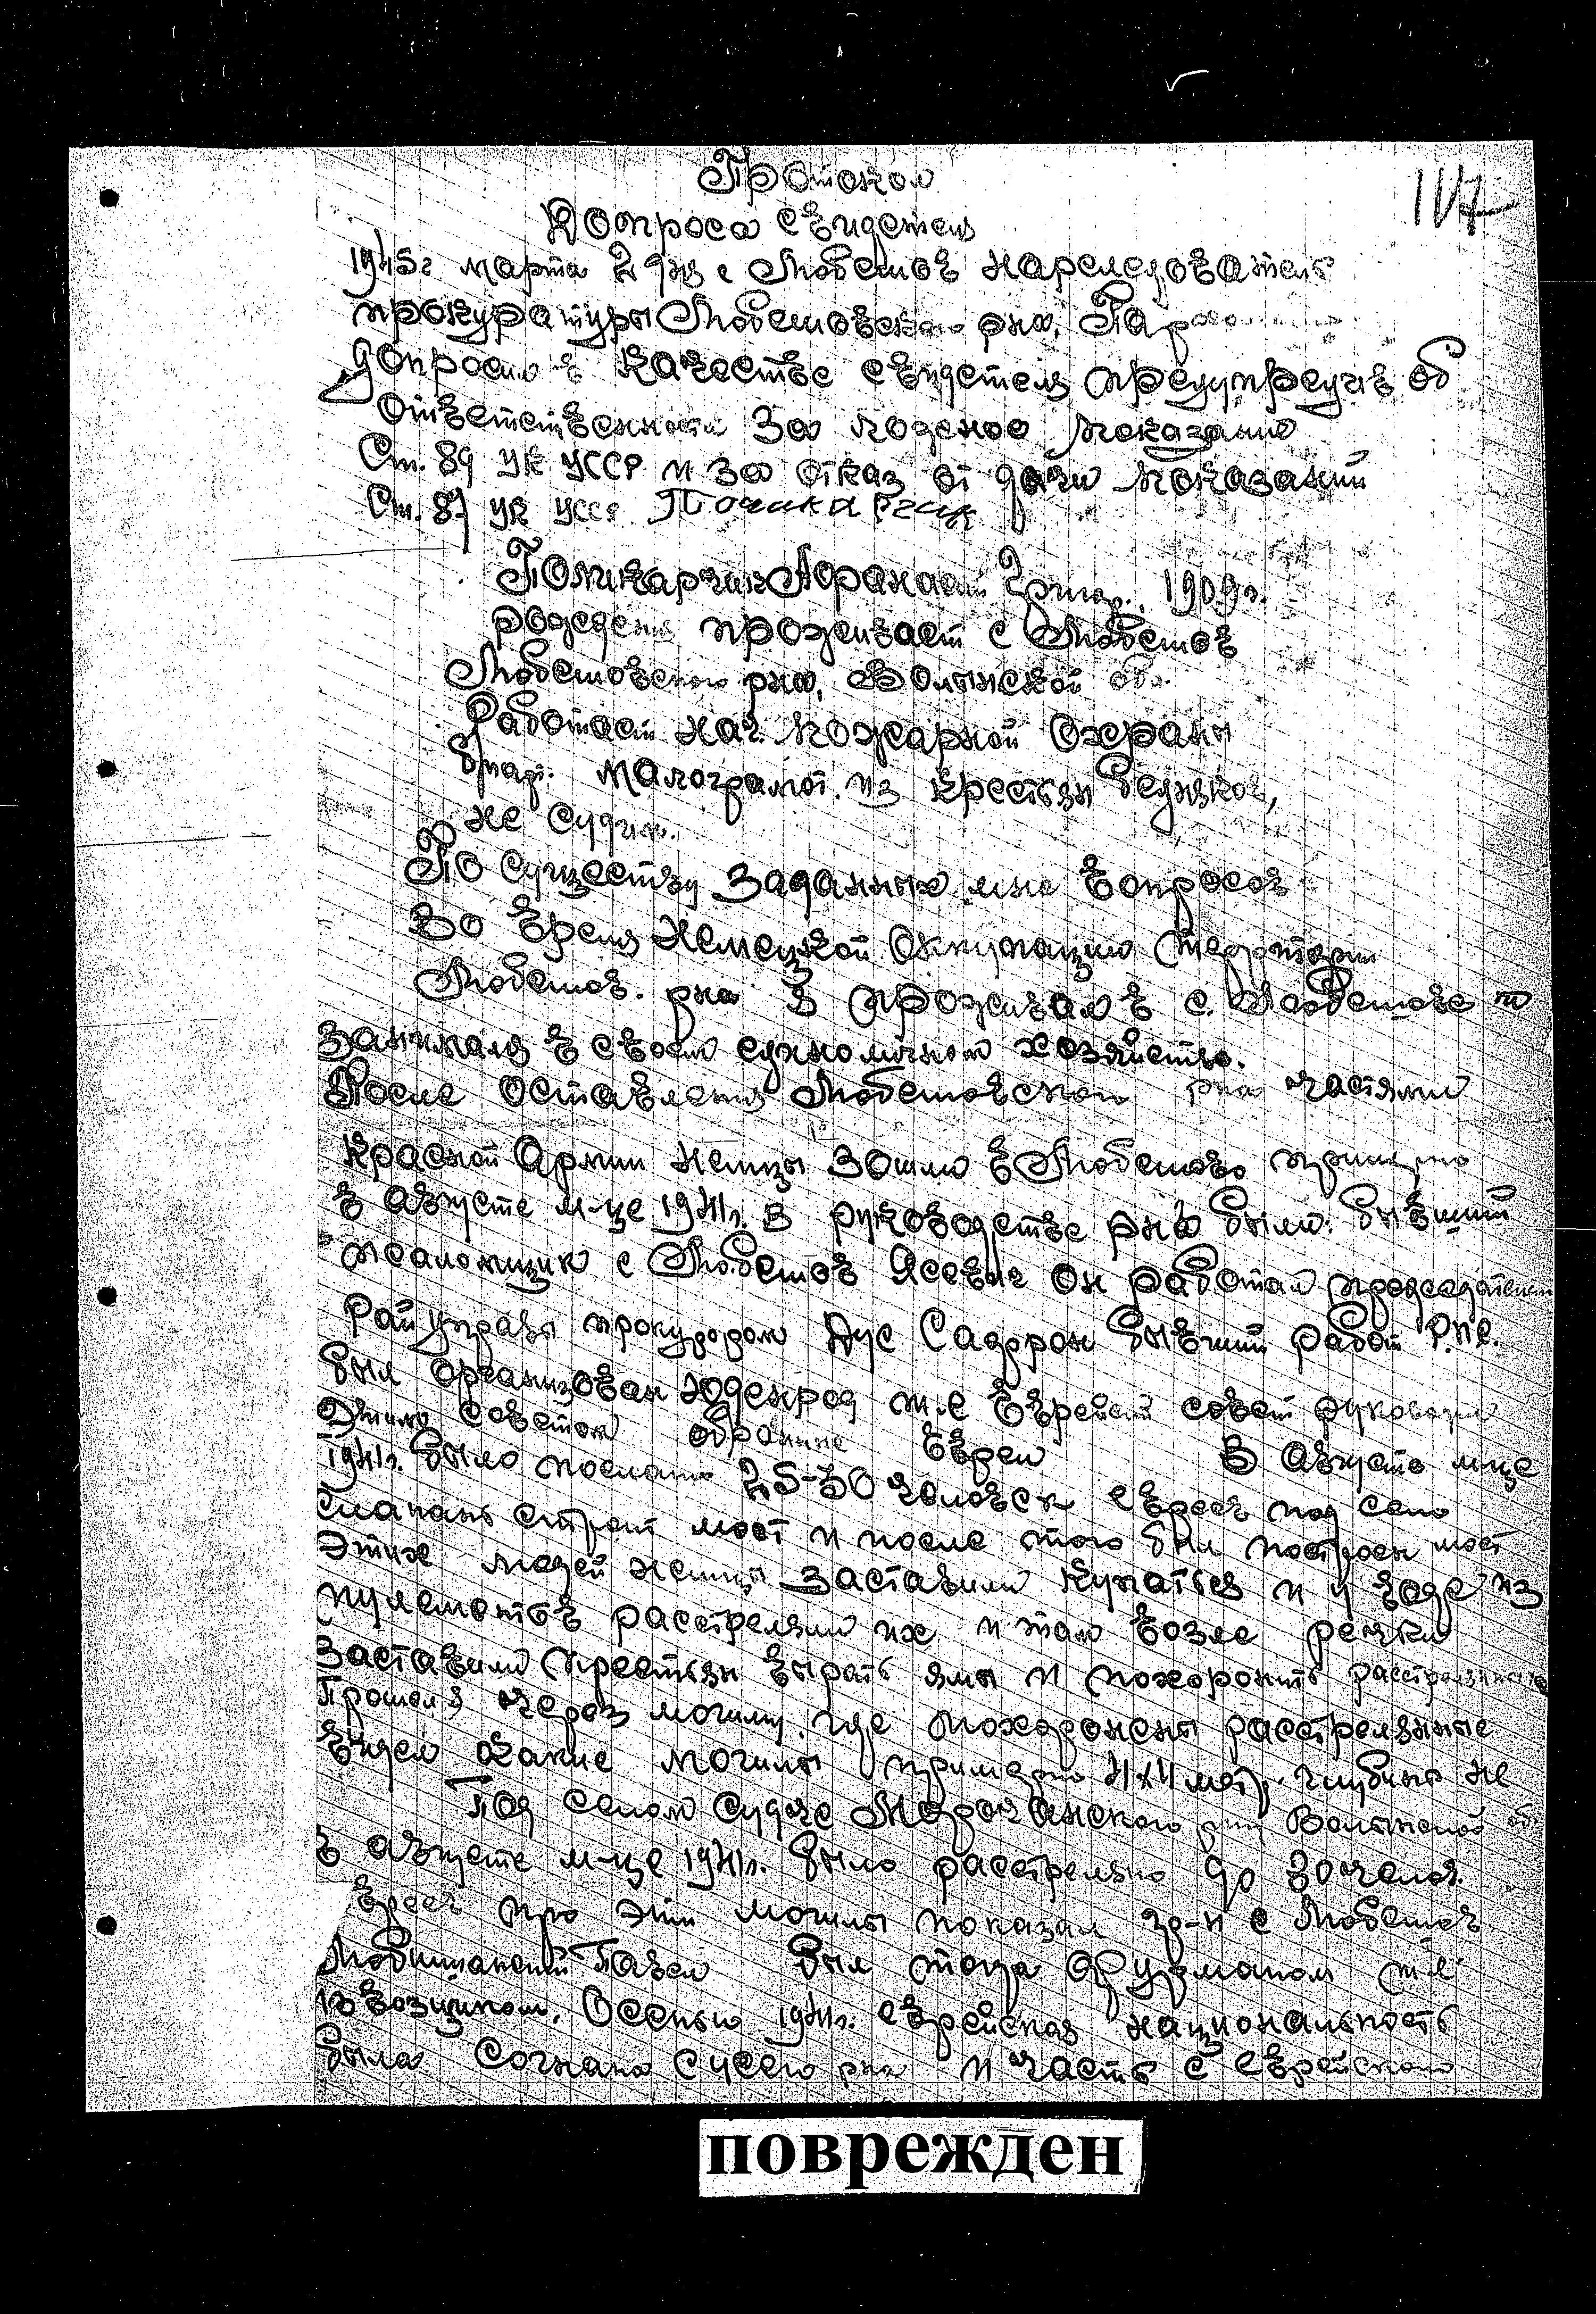 Протокол
Допроса свидетеля
147
1945г марта 2 дня с Любешов нарследователь
прокуратуры Любешовского рна.
допросил в качестве свидетеля предупредив об
ответственности за ложное показание
Ст. 89 УК УССР и за отказ от дачи показаний
Ст. 87 УК УССР
Афанасий 1909г.
рождения проживает с Любешов
Любешовского рна, Волынской об.
Работает нач. пожарной Охраны
малограмот. из крестьян бедняков,
не судим.
По существу заданных мне вопросов
Во время Немецкой Оккупации территории
Любешов. рна я проживал в с. Любешове
занимался в своем единоличном хозяйстве.
После оставления Любешовского рна частями
Красной Армии немцы зошли в Любешов примерно
в августе м-це 1941г. В руководстве рна были: бывший
с Любешов Ясевич он работал председателем
Рай управы прокурором бывший работ
был организован юденрад т.е еврейский совет руководили
этим советом евреи В августе м-це
1941г. было послано 25-30 человек евреев под село
строит мост и после того был построен мост
этих людей немцы заставили купаться и у воде из
пулеметов расстреляли их и там возле речки
заставили крестьян вырать ямы и похоронить расстрелянных
Прошел я через могилу где похоронены расстреляные
видел какие могилы примерно 4х4 мет. глубины не
Под селом Судче Морочанского рна Волынской об.
в августе м-це 1941г. было расстреляно до 30 челов.
евреев про эти могилы показал гр-н с Любешов
Павел был тогда фурманом т.е
извозщиком. Осенью 1941г. еврейская национальность
была согнана с усего рна и часть с еврейского
поврежден